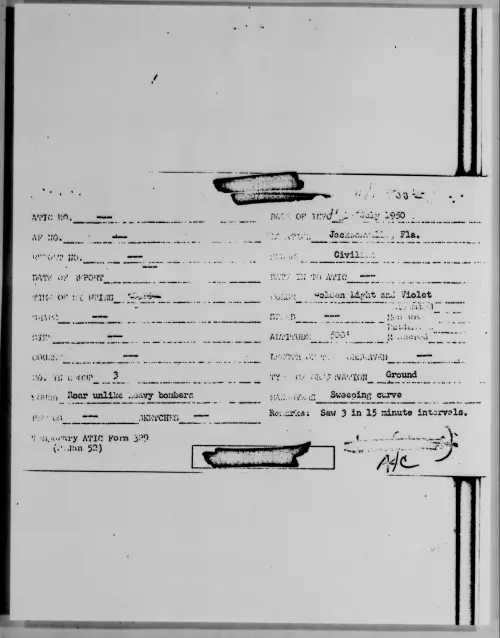 ATIC NO. --
DATE OF INFO July 1950
AF NO. --
LOCATION Jacksonville, Fla.
REPORT NO. --
SOURCE Civilian
DATE OF REPORT --
DATE IN TO ATIC --
TIME OF SIGHTING
COLOR Golden Light and Violet
SHAPE --
SPEED --
SIZE --
ALTITUDE 500'
COURSE --
LENGTH OF TIME OBSERVED --
NO. IN GROUP 3
TYPE OF OBSERVATION Ground
SOUND Roar unlike heavy bombers
MANEUVERS Sweeping curve
PHOTOS -- SKETCHES --
Remarks: Saw 3 in 15 minute intervals.
Temporary ATIC Form 329
(Jan 52)
A/C